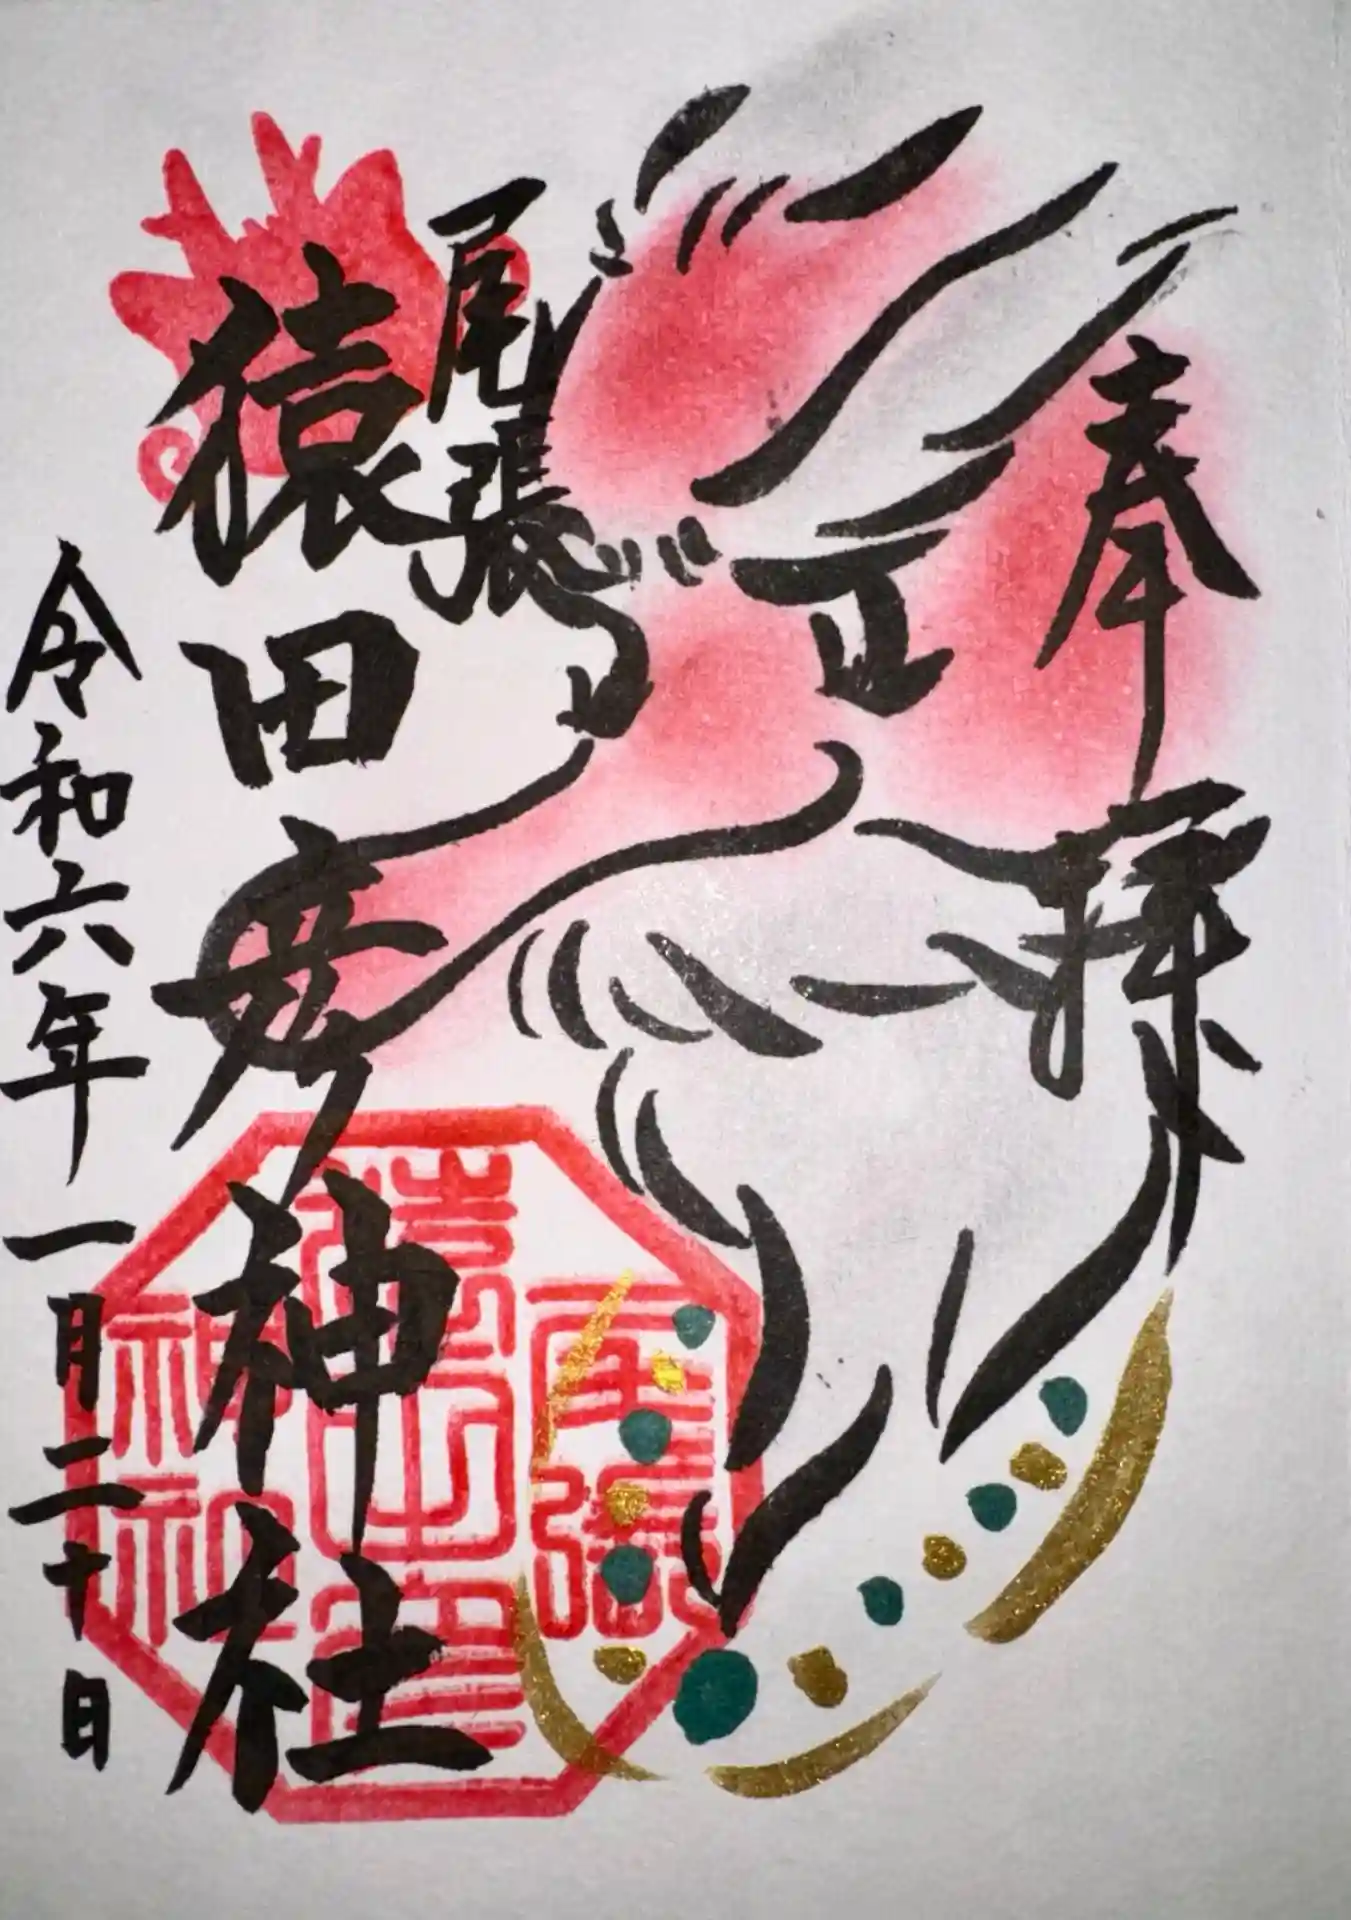 奉拝
尾張
猿田彦神社
令和六年一月二十日
尾張
猿田彦
神社